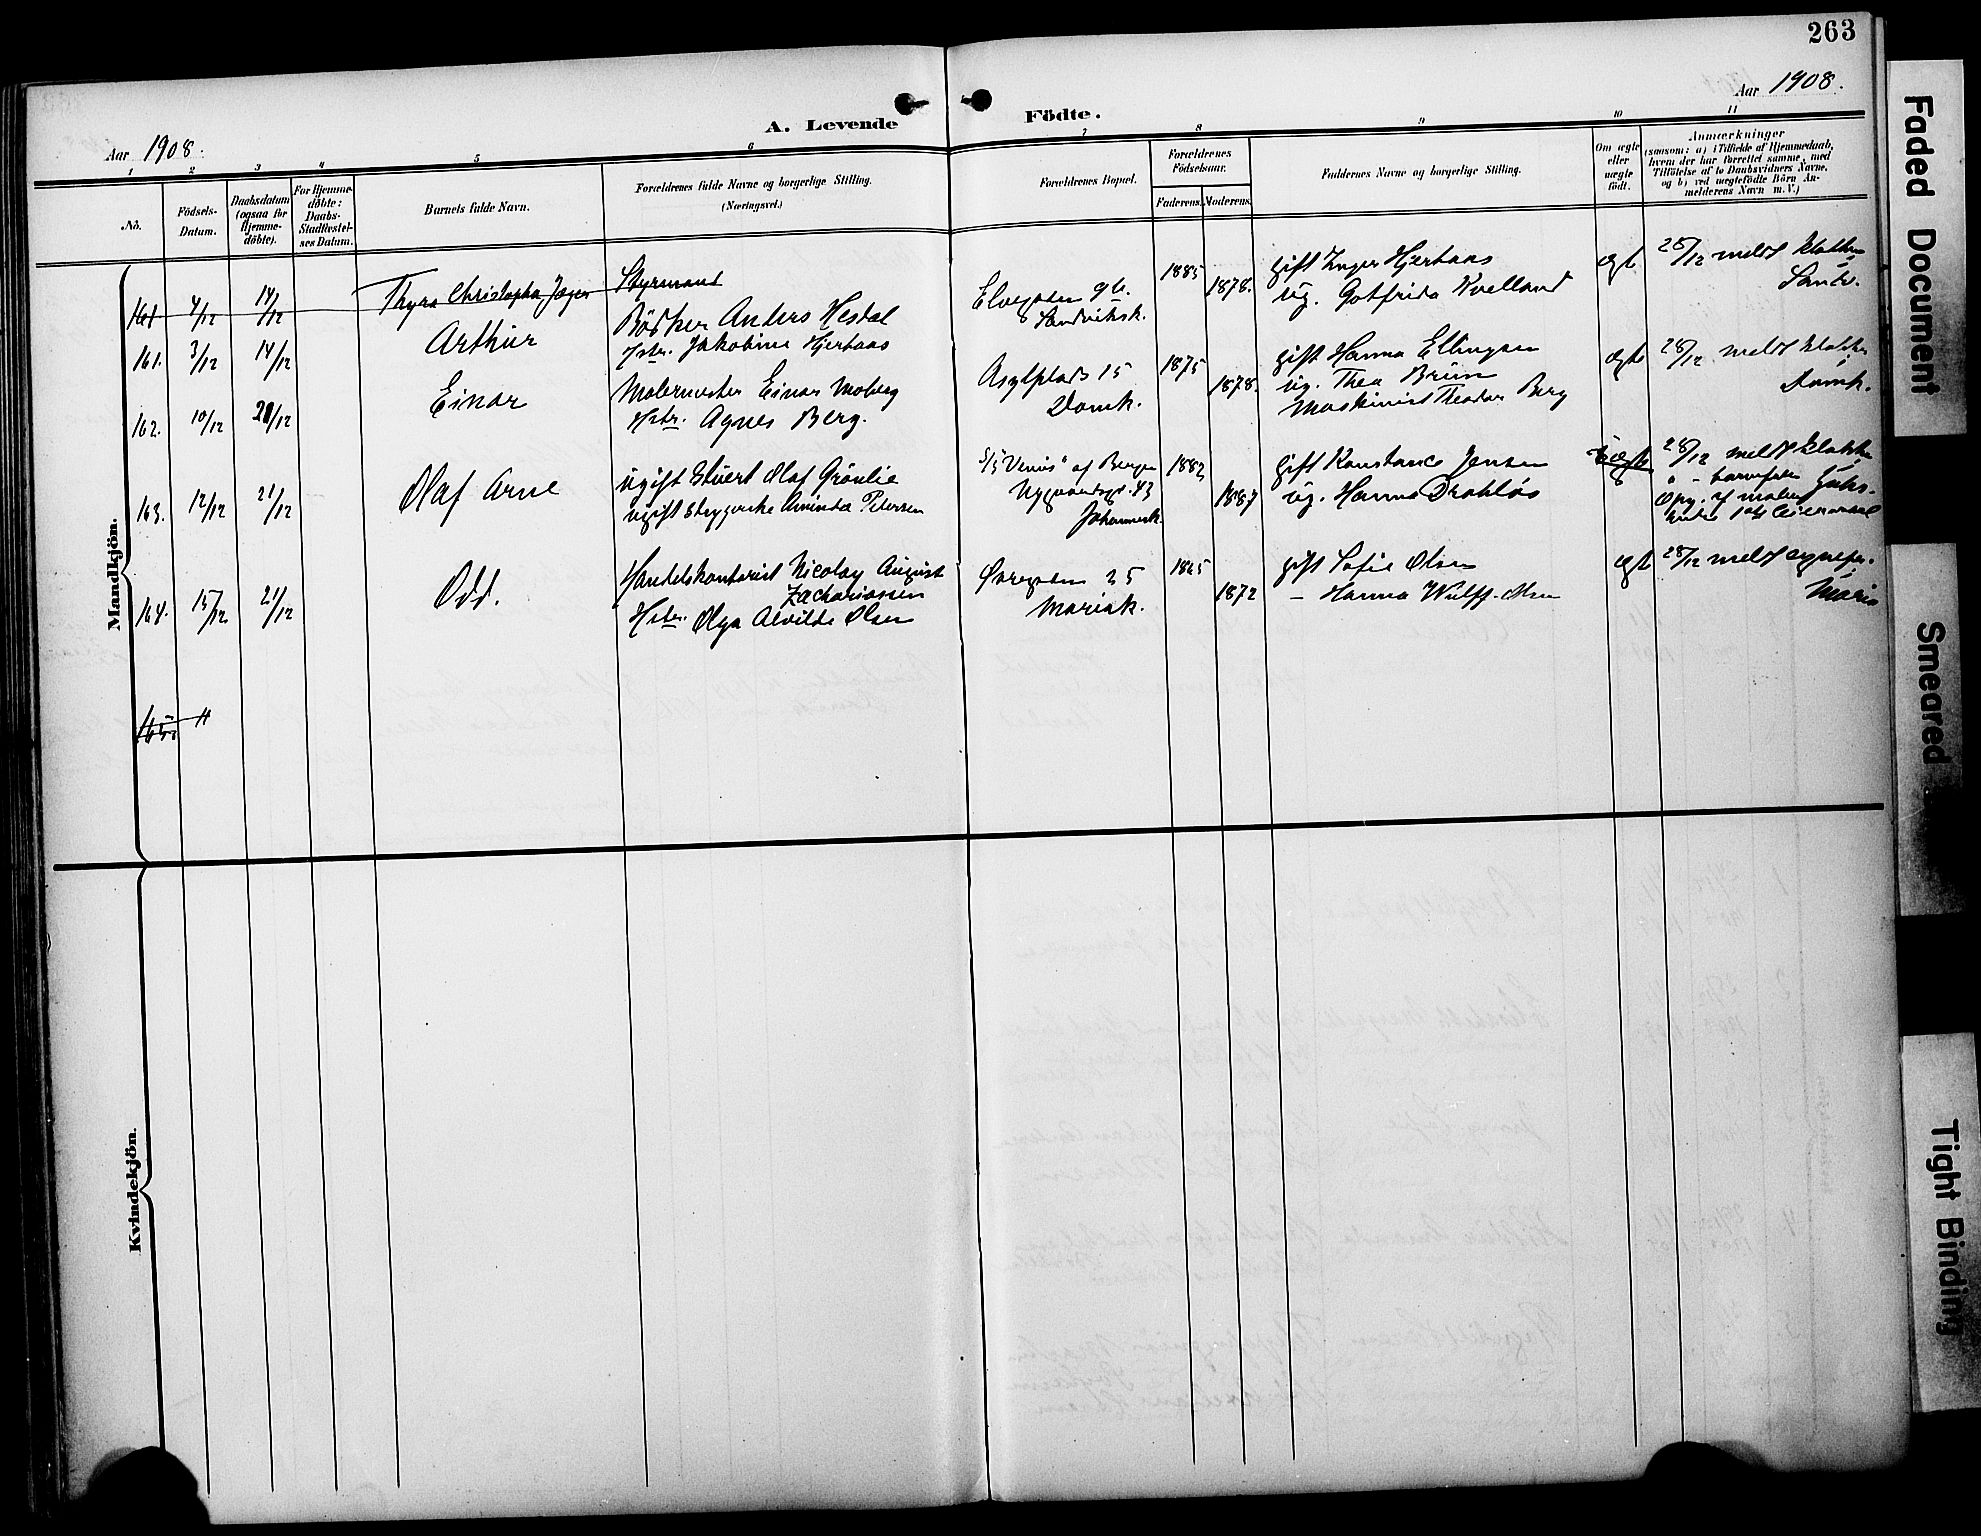 263
Aar 1908.
Aar 1908.
A. Levende Födte.
1 2 3 4 5 6 7 8 9 10 11
No.
Födsels-
Datum.
Daabsdatum
(ogsaa for
Hjemme-
döbte).
For Hjemme-
döbte:
Daabs-
Stadfæstel-
ses Datum.
Barnets fulde Navn.
Forældrenes fulde Navne og borgerlige Stilling.
(Næringsvei.)
Forældrenes Bopæl.
Forældrenes
Födselsaar.
Faderens. Moderens.
Faddernes Navne og borgerlige Stilling.
Om ægte
eller
uægte
födt.
Anmærkninger
(saasom: a) i Tilfælde af Hjemmedaab,
hvem der har forrettet samme, med
Tilföielse af to Daabsvidners Navne,
og b) ved uægtefödte Börn An-
melderens Navn m. V.)
Mandkjön.
161 4/12 14/12 Thyra Christopha Jæger Styrmand
161. 3/12 14/12 Arthur
Bödker Anders Hestad
Hstr. Jakobine Hjertaas
Elvegaden 9b.
Sandviksk.
1885 1878.
gift Inger Hjertaas
ug. Gotfrida Kvelland
ægt
28/12 meldt klokker
Sandv.
162. 10/12 20/12 Einar
Malermester Einar Moberg
Hstr. Agnes Berg.
Asylplads 15
Domk.
1875 1878.
gift Hanna Ellingsen
ug. Thea Brun
Maskinist Theodor Berg
ægte
28/12 meldt klokker
Domk.
163. 12/12 21/12 Olaf Arne
ugift Stuert Olaf Grönlie
ugift Strygerske Aminda Petersen
S/S "Venus" af Bergen
Nygaardsgt. 43
Johannesk.
1882 1887
gift Konstance Jensen
ug. Hanna Drabløs
Uægte
28/12 meldt klokker
" - barnefar
Opg. af moder
164. 15/12 21/12 Odd.
Handelskontorist Nicolay August
Zachariassen
Hstr. Olga Alvilde Olsen
Øvregaden 25
Mariak.
1865 1872
gift Sofie Olsen
– Hanna Wulff-Olsen
ægt
28/12 meldt sognepr.
Maria
165.
Kvindekjön.
Faded Document
Smeared
Tight Binding